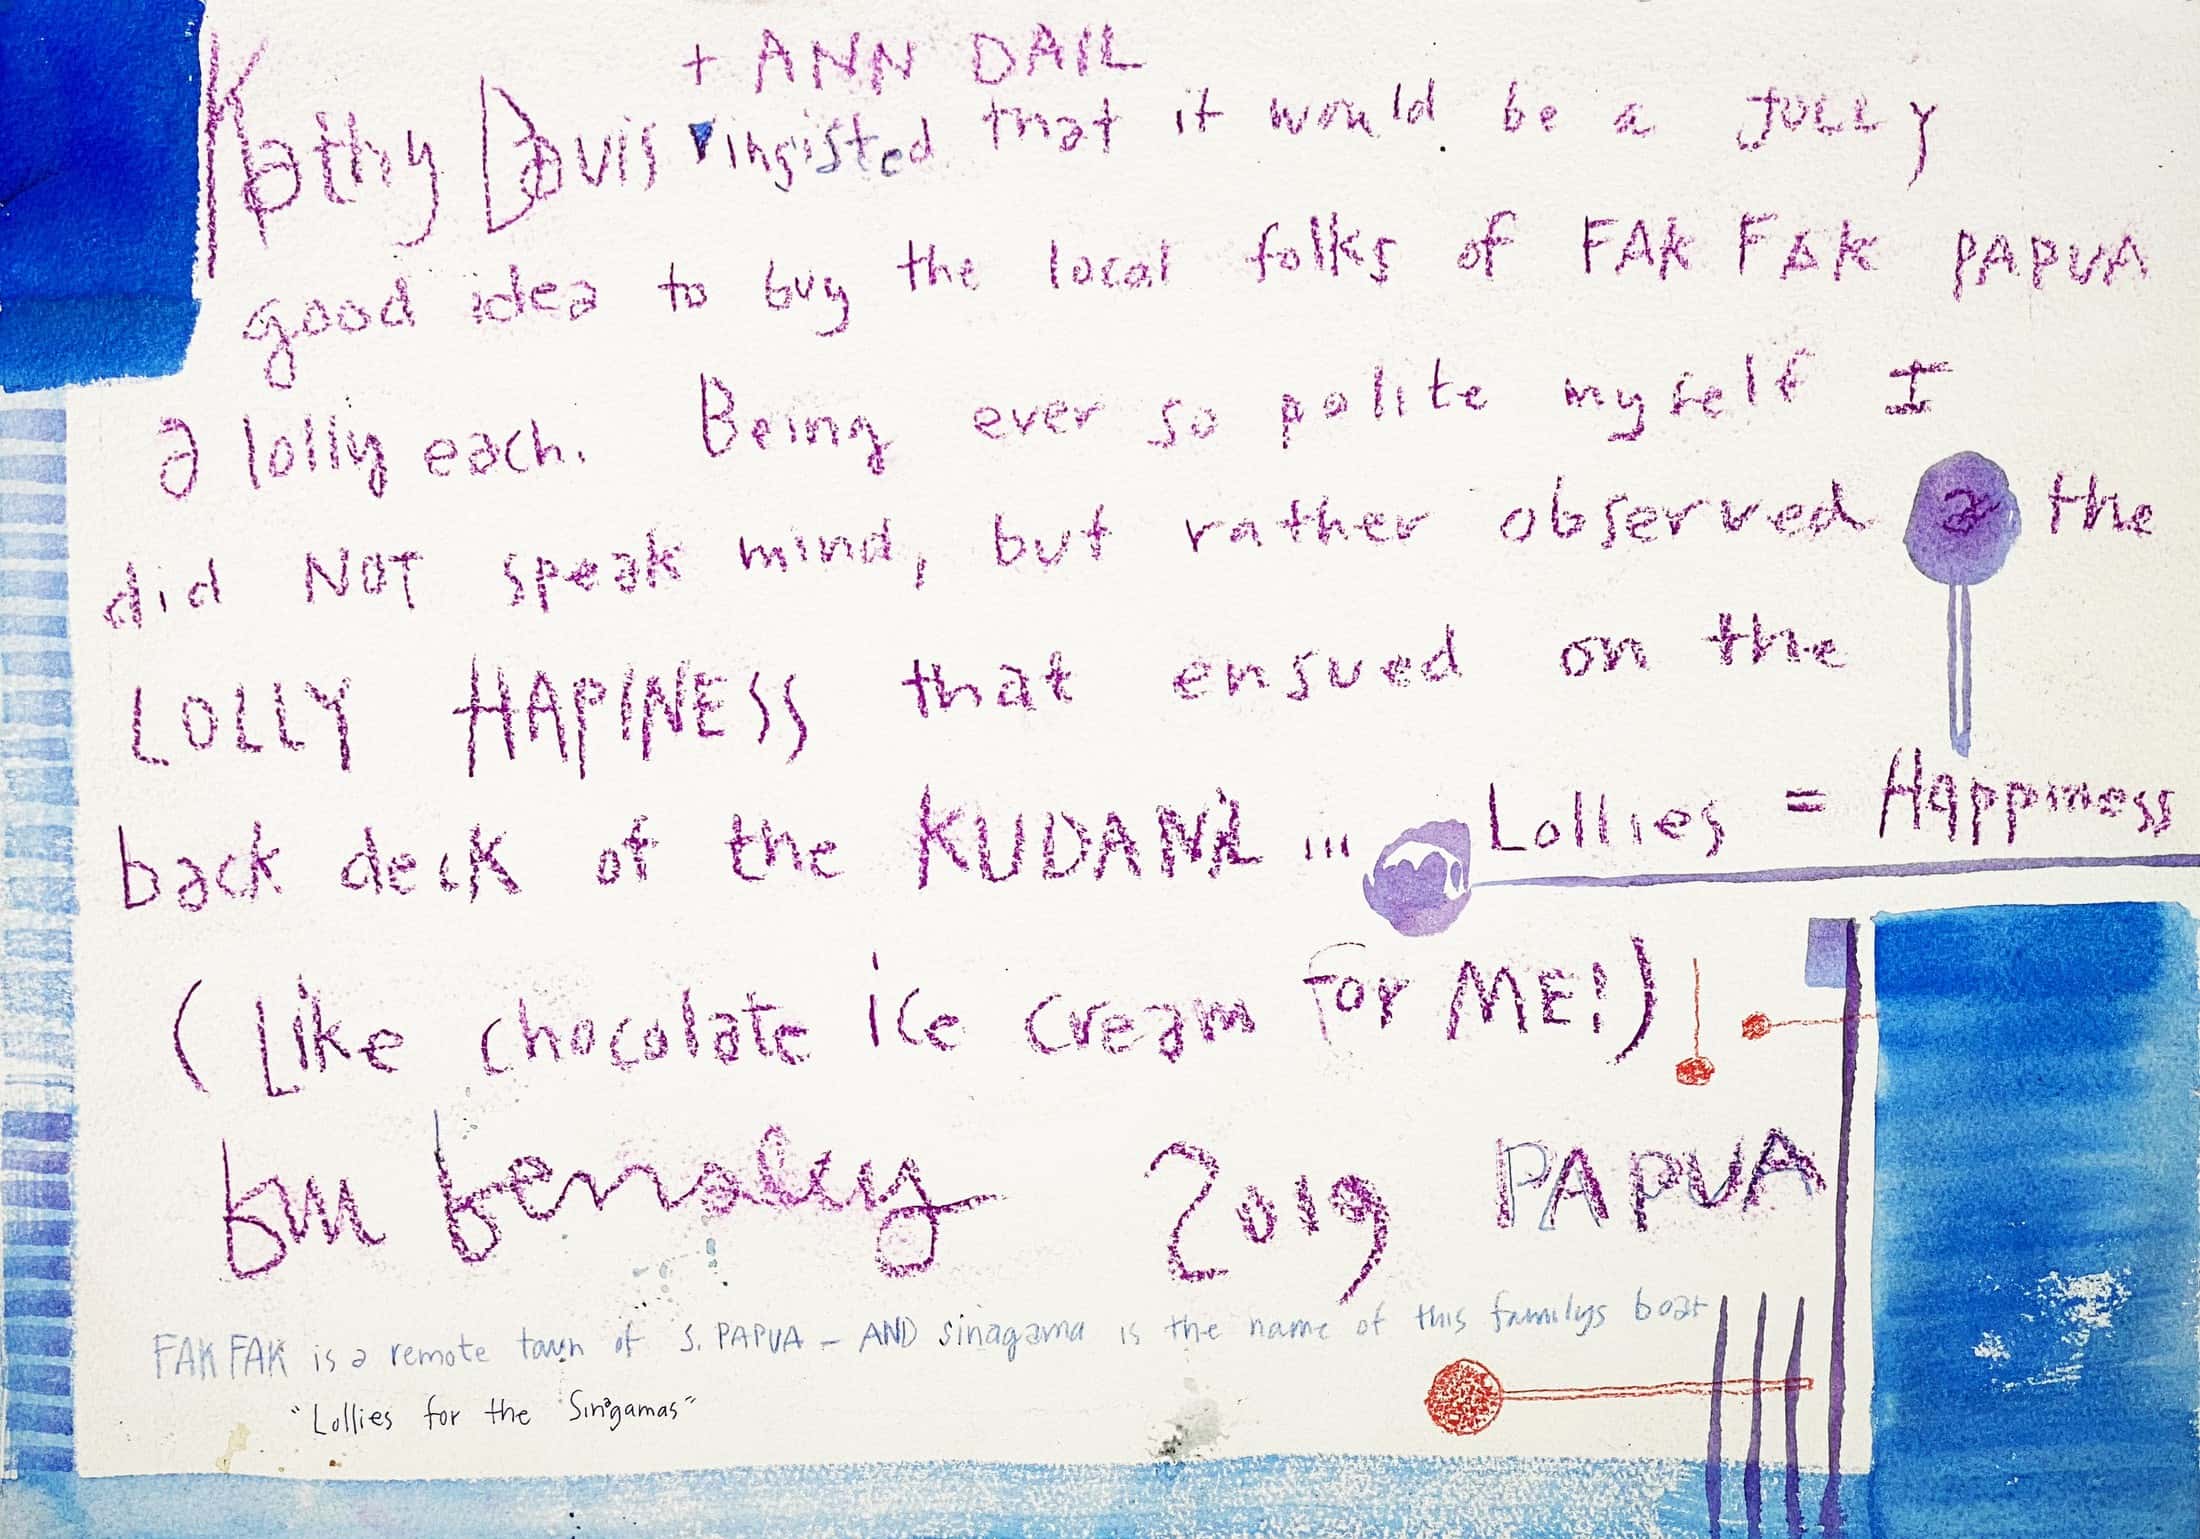 + ANN DAIL
Kathy Davis insisted that it would be a JOLLY
good idea to buy the local folks of FAK FAK PAPUA
a lolly each. Being ever so polite myself I
did NOT speak mind, but rather observed a the
LOLLY HAPINESS that ensued on the
back deck of the KUDANIL ... Lollies = Happiness
(Like chocolate ice cream for ME!)
2019 PAPUA
FAK FAK is a remote town of S. PAPUA - AND sinagama is the name of this familys boat
"Lollies for the Sinagamas"